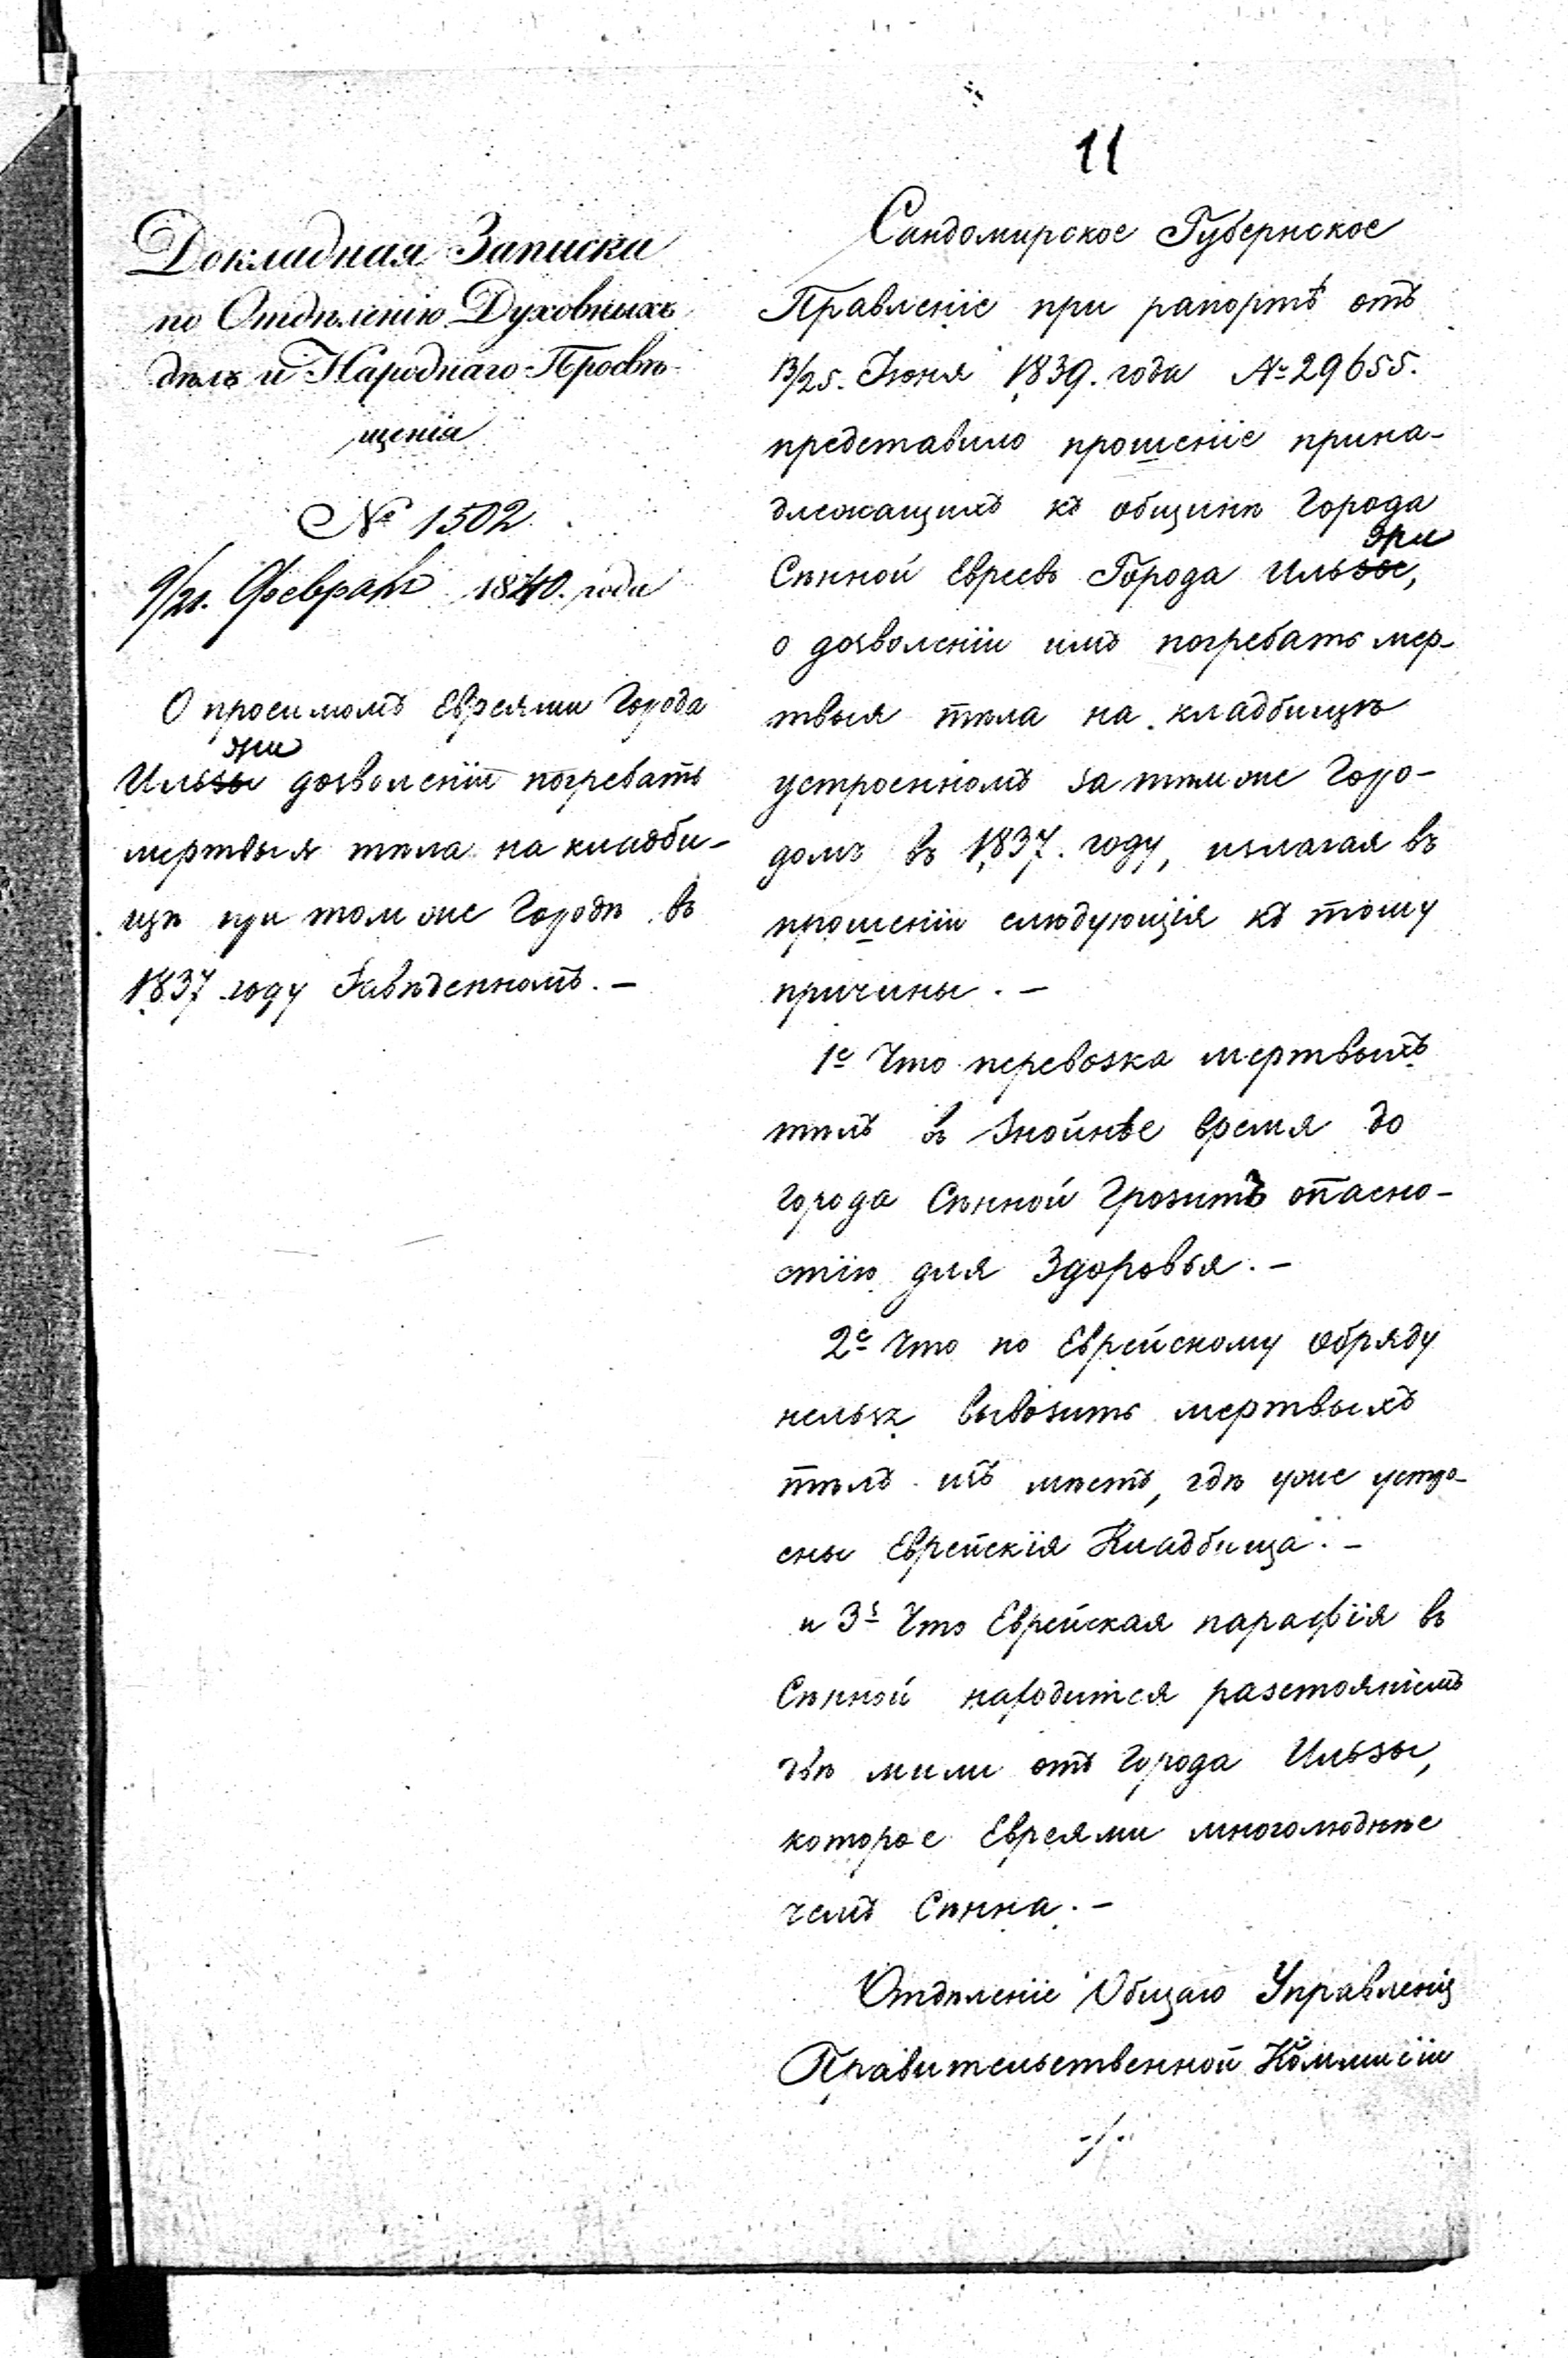 11
Докладная Записка
по Отдѣленію Духовныхъ
дѣлъ и Народнаго Просвѣ-
щенія
№ 1502
9/21. Февраля 1840. года
О просимомъ Евреями Города
жи
Ильзы дозволеніи погребать
мертвыя тѣла на кладби-
щѣ при томже Городѣ въ
1837 году Завѣденномъ. —
Сандомирское Губернское
Правленіе при рапортѣ отъ
13/25. Іюня 1839. года № 29655.
представило прошеніе прина-
длежащихъ къ общинѣ Города
жи
Сѣнной Евреевъ Города Ильзы,
о дозволеніи имъ погребать мер-
твыя тѣла на кладбищѣ
устроенномъ за тѣмже Горо-
домъ въ 1837. году, излагая въ
прошеніи слѣдующія къ тому
причины. —
1е Что перевозка мертвыхъ
тѣлъ въ Знойнѣе время до
города Сѣнной Грозитъ опасно-
стію для Здоровья. —
2е Что по Еврейскому обряду
нельзя вывозить мертвыхъ
тѣлъ изъ мѣстъ, гдѣ уже устро-
ены Еврейскія Кладбища. —
и 3е Что Еврейская парафія въ
Сѣнной находится разстояніемъ
двѣ мили отъ Города Ильзы,
которое Евреями многолюднѣе
чемъ Сѣнна. —
Отдѣленіе Общаго Управленія
Правительственной Коммисіи
-/-